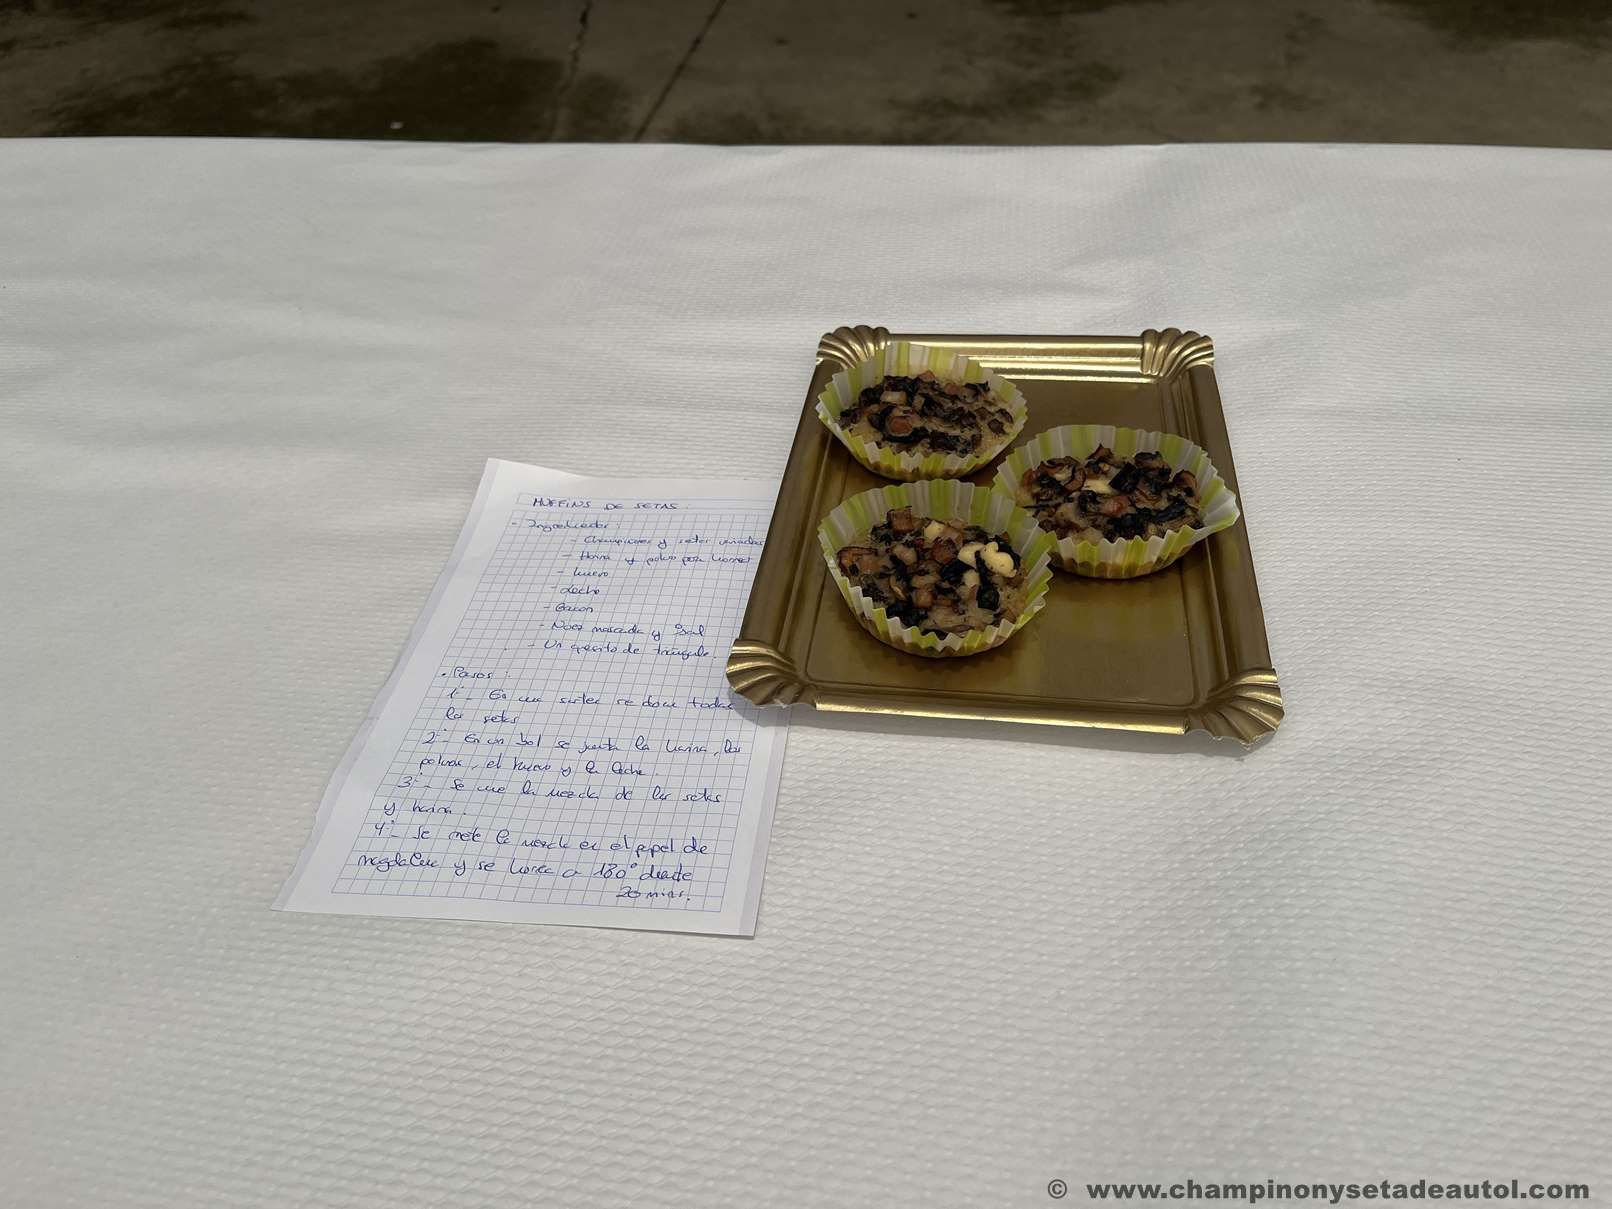 MUFFINS DE SETAS:
- Ingredientes:
- Champiñones y setas variadas
- Harina y polvo para hornear
- huevo
- Leche
- Bacon
- Nuez moscada y sal
- Un quesito de triángulo.
. Pasos:
1º- En una sartén se doran todas
las setas
2º- En un bol se junta la harina, los
polvos, el huevo y la leche.
3º- Se une la mezcla de las setas
y harina.
4º- Se mete la mezcla en el papel de
magdalena y se hornea a 180º durante
20 mins.
© www.champinonysetadeautol.com